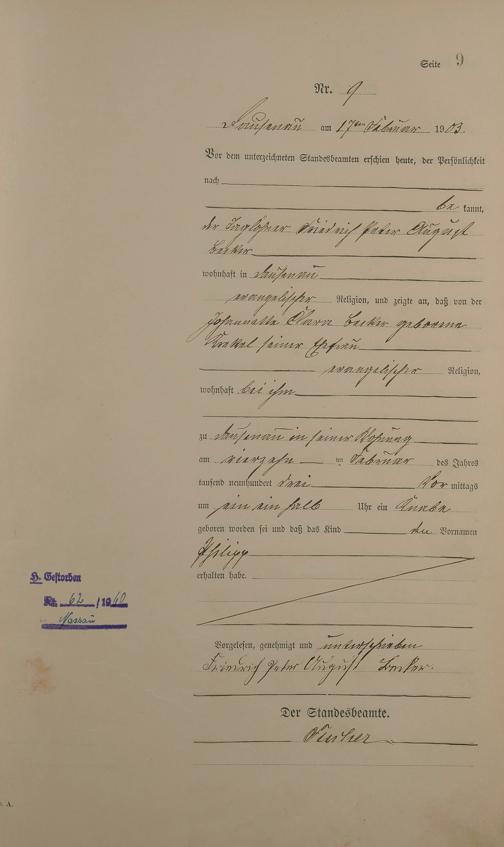 Seite 9
Nr. 9
Dausenau am 17ten Februar 1903.
Vor dem unterzeichneten Standesbeamten erschien heute, der Persönlichkeit
nach
be kannt,
der Taglöhner Friedrich Peter August
Becker
wohnhaft in Dausenau
evangelischer Religion, und zeigte an, daß von der
Johannette Clara Becker geborene
seiner Ehefrau
evangelischer Religion,
wohnhaft bei ihm
zu Dausenau in seiner Wohnung
am vierzehn ten Februar des Jahres
tausend neunhundert drei Vor mittags
um ein ein halb Uhr ein Knabe
geboren worden sei und daß das Kind den Vornamen
Philipp
erhalten habe.
H. Gestorben
Nr. 62 / 1960
Nassau
Vorgelesen, genehmigt und unterschrieben
Friedrich Peter August Becker.
Der Standesbeamte.
A.